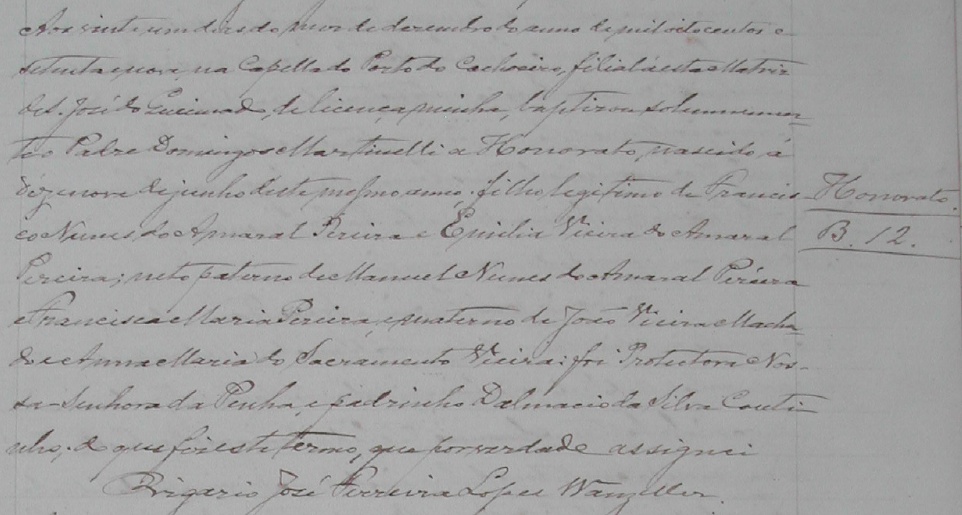 Aos vinte um dias do mez de dezembro do anno de mil oitocentos e
setenta e nove, na Capella do Porto do Cachoeiro, filial á esta Matriz
de S. José do Queimado, de licença minha, baptizou solemnemen-
te o Padre Domingos Martinelli a Honorato, nascido á
dezenove de junho deste mesmo anno, filho legitimo de Francis-
co Nunes do Amaral Pereira e Emilia Vieira do Amaral
Pereira; neto paterno de Manuel Nunes do Amaral Pereira
e Francisca Maria Pereira, e materno de João Vieira Macha-
do e Anna Maria do Sacramento Vieira: foi Protectora Nos-
sa Senhora da Penha, e padrinho Dalmacio da Silva Couti-
nho, de que fiz este termo, que por verdade assignei
Vigario José Ferreira Lopes Wanzeller.
Honorato.
B. 12.